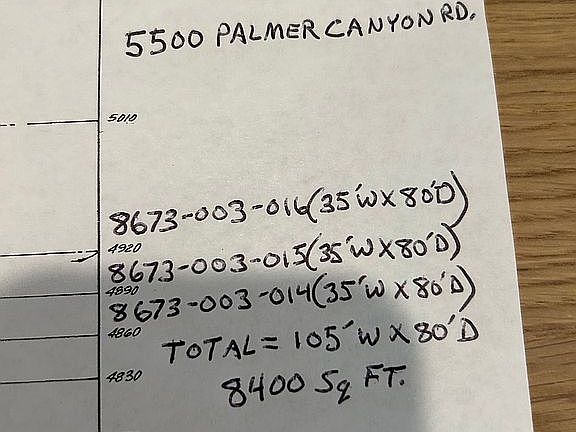 5500 PALMER CANYON RD.
5010
8673-003-016(35'W X 80'D)
4920
8673-003-015(35'W X 80'D)
4890
8673-003-014(35'W X 80'D)
4860
TOTAL = 105'W X 80'D
4830
8400 Sq FT.